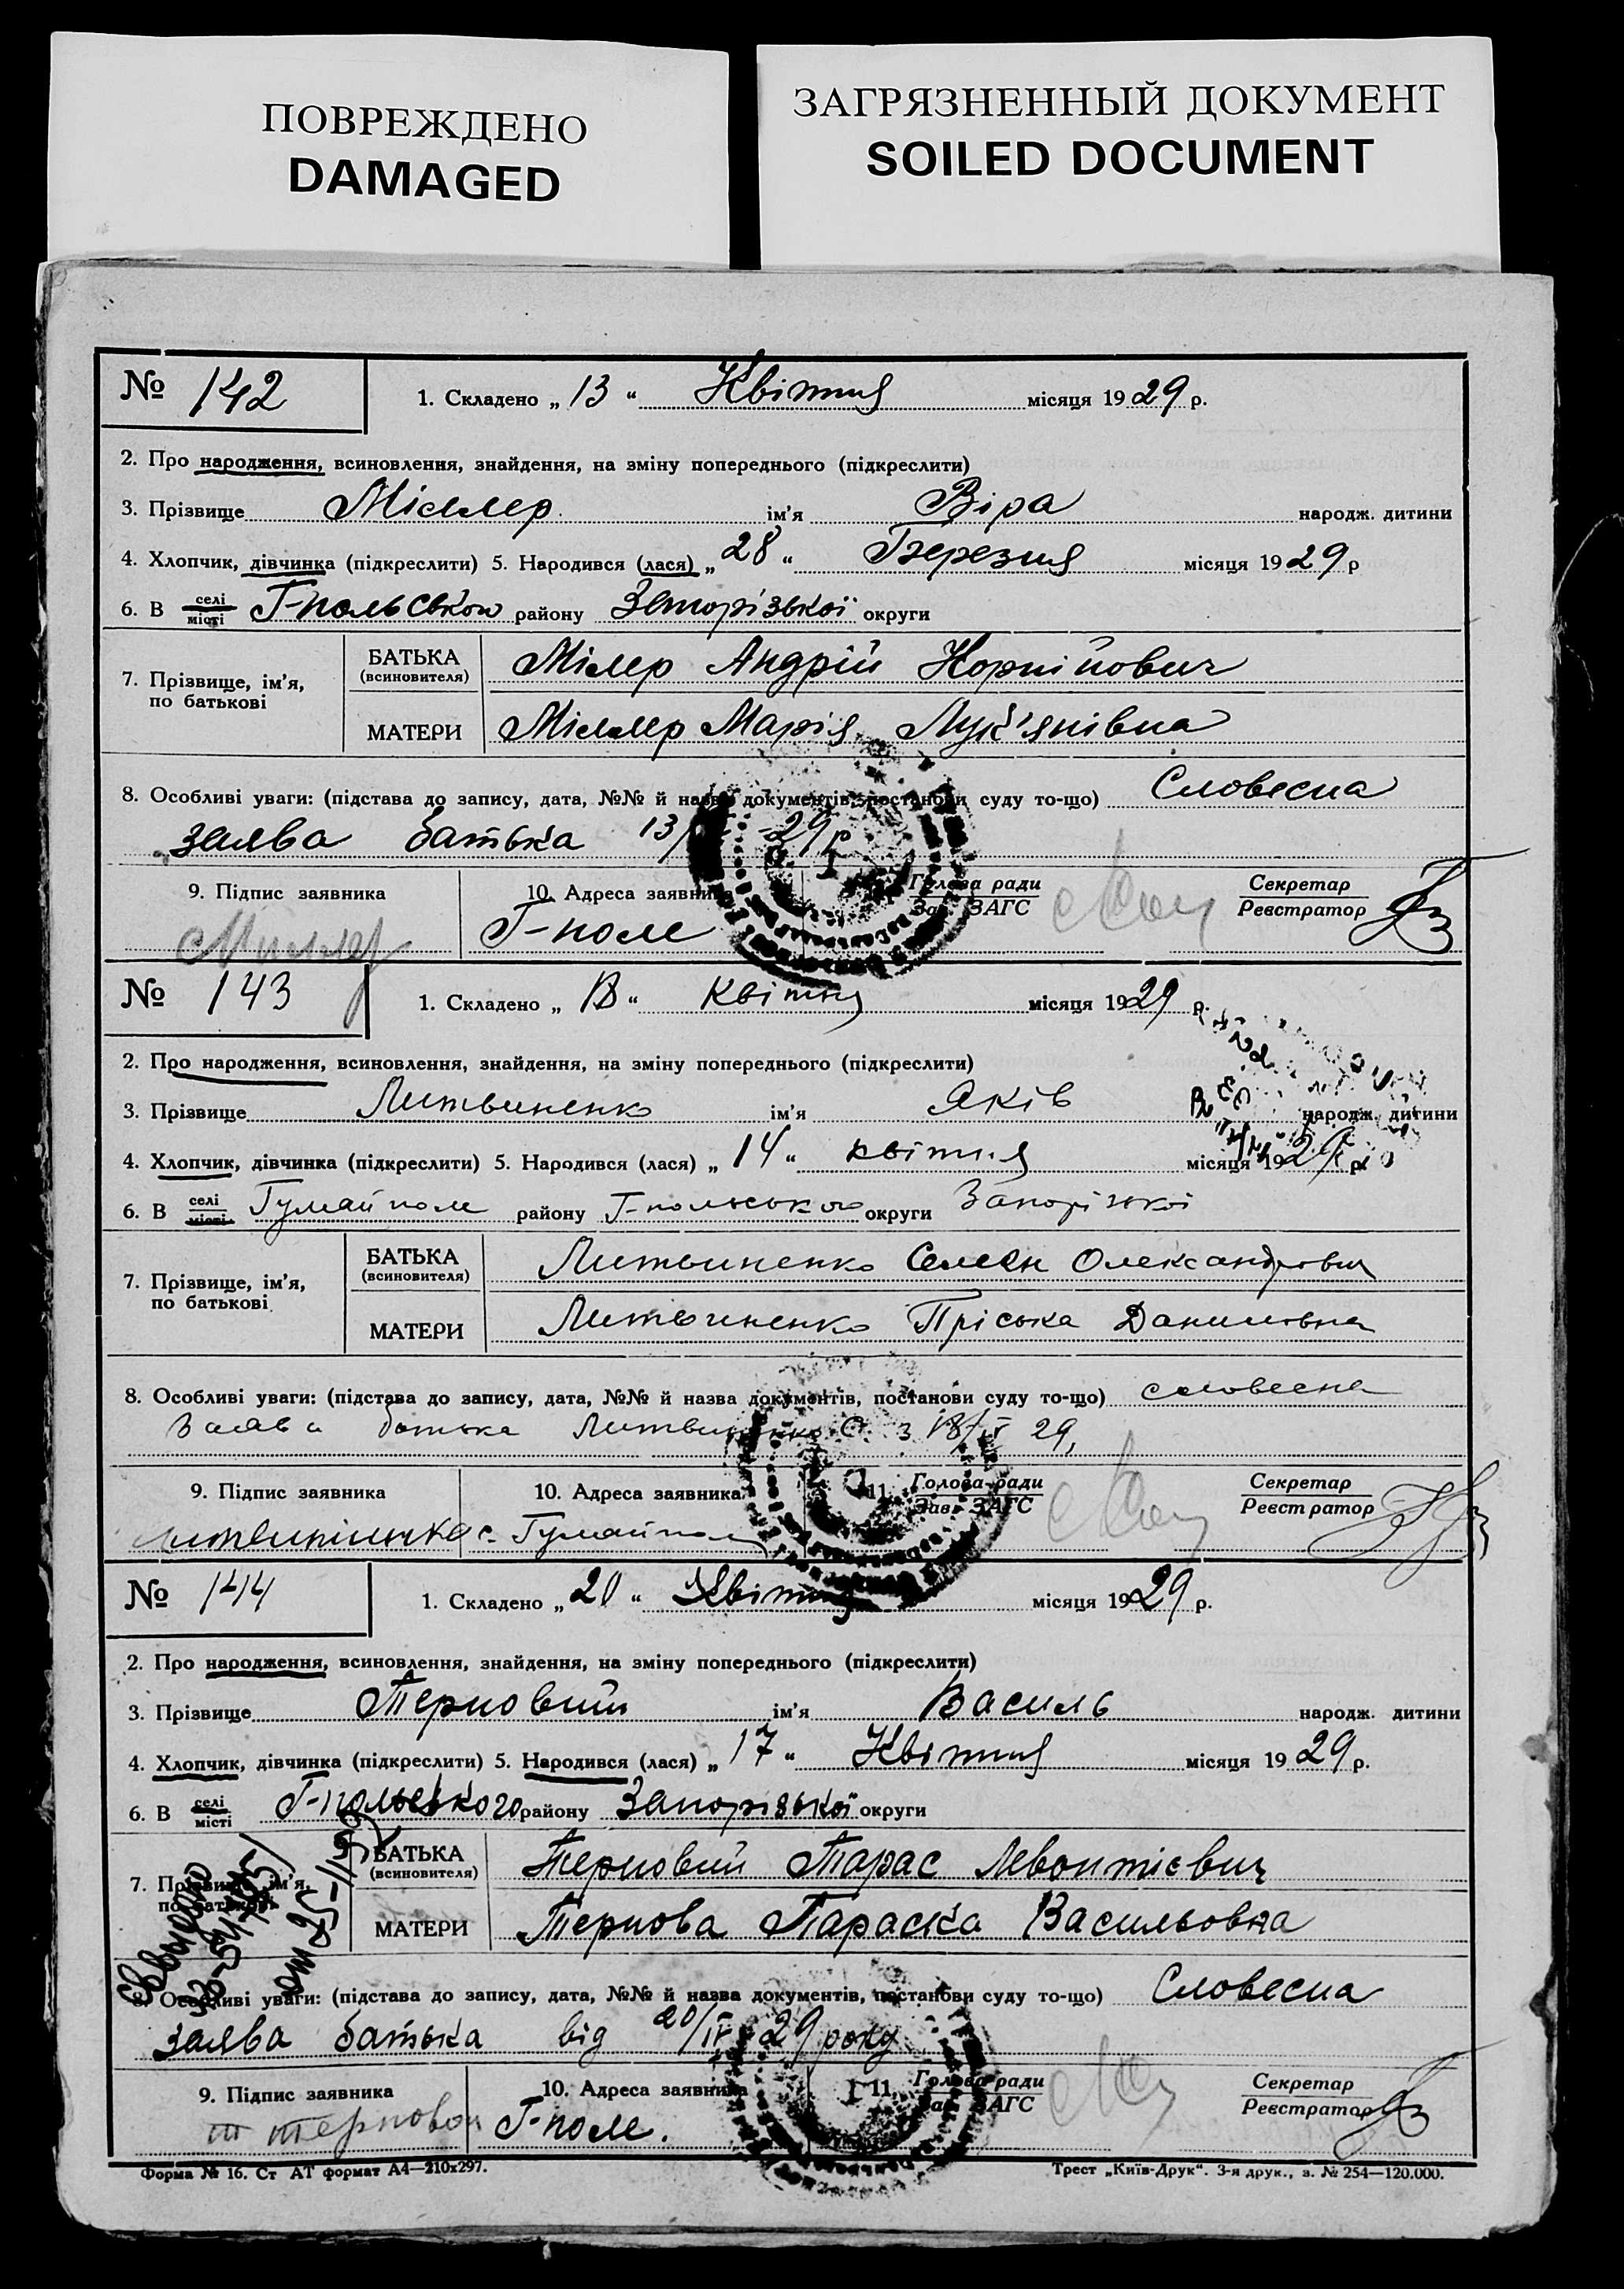 ПОВРЕЖДЕНО
DAMAGED
ЗАГРЯЗНЕННЫЙ ДОКУМЕНТ
SOILED DOCUMENT
№ 142 1. Складено „ 13 “ Квітня місяця 1929 р.
2. Про народження, всиновлення, знайдення, на зміну попереднього (підкреслити)
3. Прізвище Міллер ім'я Віра народж. дитини
4. Хлопчик, дівчинка (підкреслити) 5. Народився (лася) „ 28 “ Березня місяця 1929 р
6. В селі місті Г-польського району Запорізької округи
7. Прізвище, ім'я, по батькові
БАТЬКА (всиновителя) Мілер Андрій Корнійович
МАТЕРИ Міллер Марія Лук'янівна
8. Особливі уваги: (підстава до запису, дата, №№ й назва документів, постанови суду то-що) Словесна
заява батька 13/ 29 р
9. Підпис заявника 10. Адреса заявника Голова ради Зав. ЗАГС Секретар Реєстратор
Миллер Г-поле
№ 143 1. Складено „ 18 “ Квітня місяця 1929 р.
2. Про народження, всиновлення, знайдення, на зміну попереднього (підкреслити)
3. Прізвище Литвиненко ім'я Яків народж. дитини
4. Хлопчик, дівчинка (підкреслити) 5. Народився (лася) „ 14 “ квітня місяця 1929 р.
6. В селі місті Гуляйполе району Г-польського округи Запорізької
7. Прізвище, ім'я, по батькові
БАТЬКА (всиновителя) Литвиненко Семен Олександрович
МАТЕРИ Литвиненко Пріська Данилівна
8. Особливі уваги: (підстава до запису, дата, №№ й назва документів, постанови суду то-що) словесна
Заява батька Литвиненко С. з 18/IV 29,
9. Підпис заявника 10. Адреса заявника 11. Голова ради Зав. ЗАГС Секретар Реєстратор
с. Гуляйполе
№ 144 1. Складено „ 20 “ Квітня місяця 1929 р.
2. Про народження, всиновлення, знайдення, на зміну попереднього (підкреслити)
3. Прізвище Терновий ім'я Василь народж. дитини
4. Хлопчик, дівчинка (підкреслити) 5. Народився (лася) „ 17 “ Квітня місяця 1929 р.
6. В селі місті Г-польського району Запорізької округи
7. Прізвище, ім'я, по батькові
БАТЬКА (всиновителя) Терновий Тарас Левонтієвич
МАТЕРИ Тернова Параска Васильовна
8. Особливі уваги: (підстава до запису, дата, №№ й назва документів, постанови суду то-що) Словесна
заява батька від 20/IV 29 року
9. Підпис заявника 10. Адреса заявника 11. Голова ради Зав. ЗАГС Секретар Реєстратор
т терновой Г-поле.
Форма № 16. Ст АТ формат А4—210х297.
Трест „Київ-Друк“. 3-я друк., з. № 254—120.000.